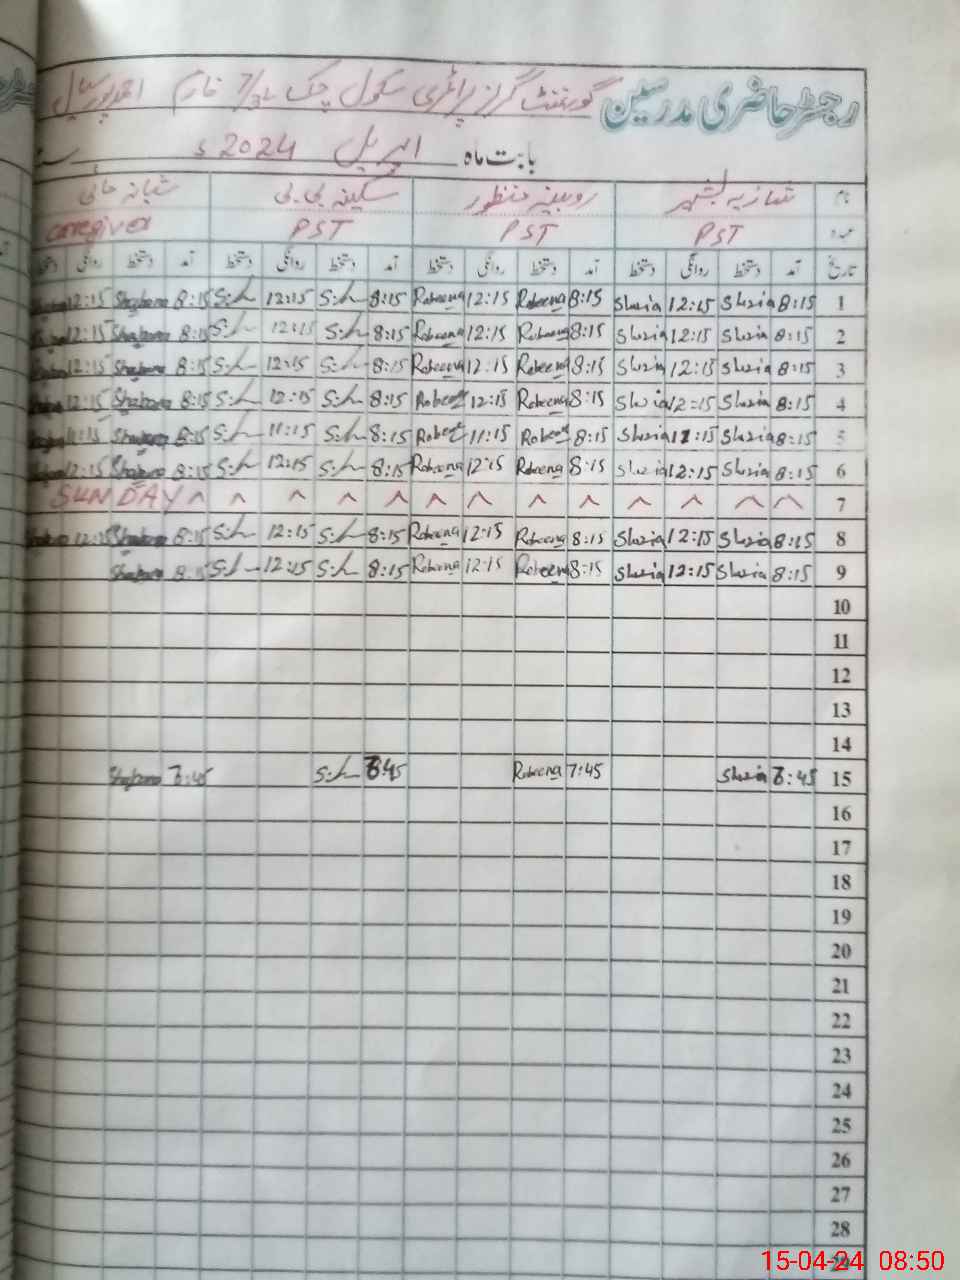 رجسٹر حاضری مدرسین گورنمنٹ گرلز پرائمری سکول چک 7/3L فارم احمد پور سیال
بابت ماہ اپریل 2024 s
نام شازیہ بشیر روبینہ منظور سکینہ بی بی شبانہ مائی
عہدہ PST PST PST caregiver
تاریخ آمد دستخط روانگی دستخط آمد دستخط روانگی دستخط آمد دستخط روانگی دستخط آمد دستخط روانگی دستخط
1 8:15 Shazia 12:15 Shazia 8:15 Robeena 12:15 Robeena 8:15 12:15 8:15 Shabana 12:15
2 8:15 Shazia 12:15 Shazia 8:15 Robeena 12:15 Robeena 8:15 12:15 8:15 Shabana 12:15
3 8:15 Shazia 12:15 Shazia 8:15 Robeena 12:15 Robeena 8:15 12:15 8:15 Shabana 12:15
4 8:15 Shazia 12:15 Shazia 8:15 Robeena 12:15 8:15 12:15 8:15 Shabana 12:15
5 8:15 Shazia 11:15 Shazia 8:15 11:15 8:15 11:15 8:15 Shabana 11:15
6 8:15 Shazia 12:15 Shazia 8:15 Robeena 12:15 Robeena 8:15 12:15 8:15 Shabana 12:15
7 SUNDAY
8 8:15 Shazia 12:15 Shazia 8:15 Robeena 12:15 Robeena 8:15 12:15 8:15 Shabana 12:15
9 8:15 Shazia 12:15 Shazia 8:15 Robeena 12:15 Robeena 8:15 12:15 8:15 Shabana
10
11
12
13
14
15 Shazia 7:45 Robeena Shabana
16
17
18
19
20
21
22
23
24
25
26
27
28
29
15-04-24 08:50